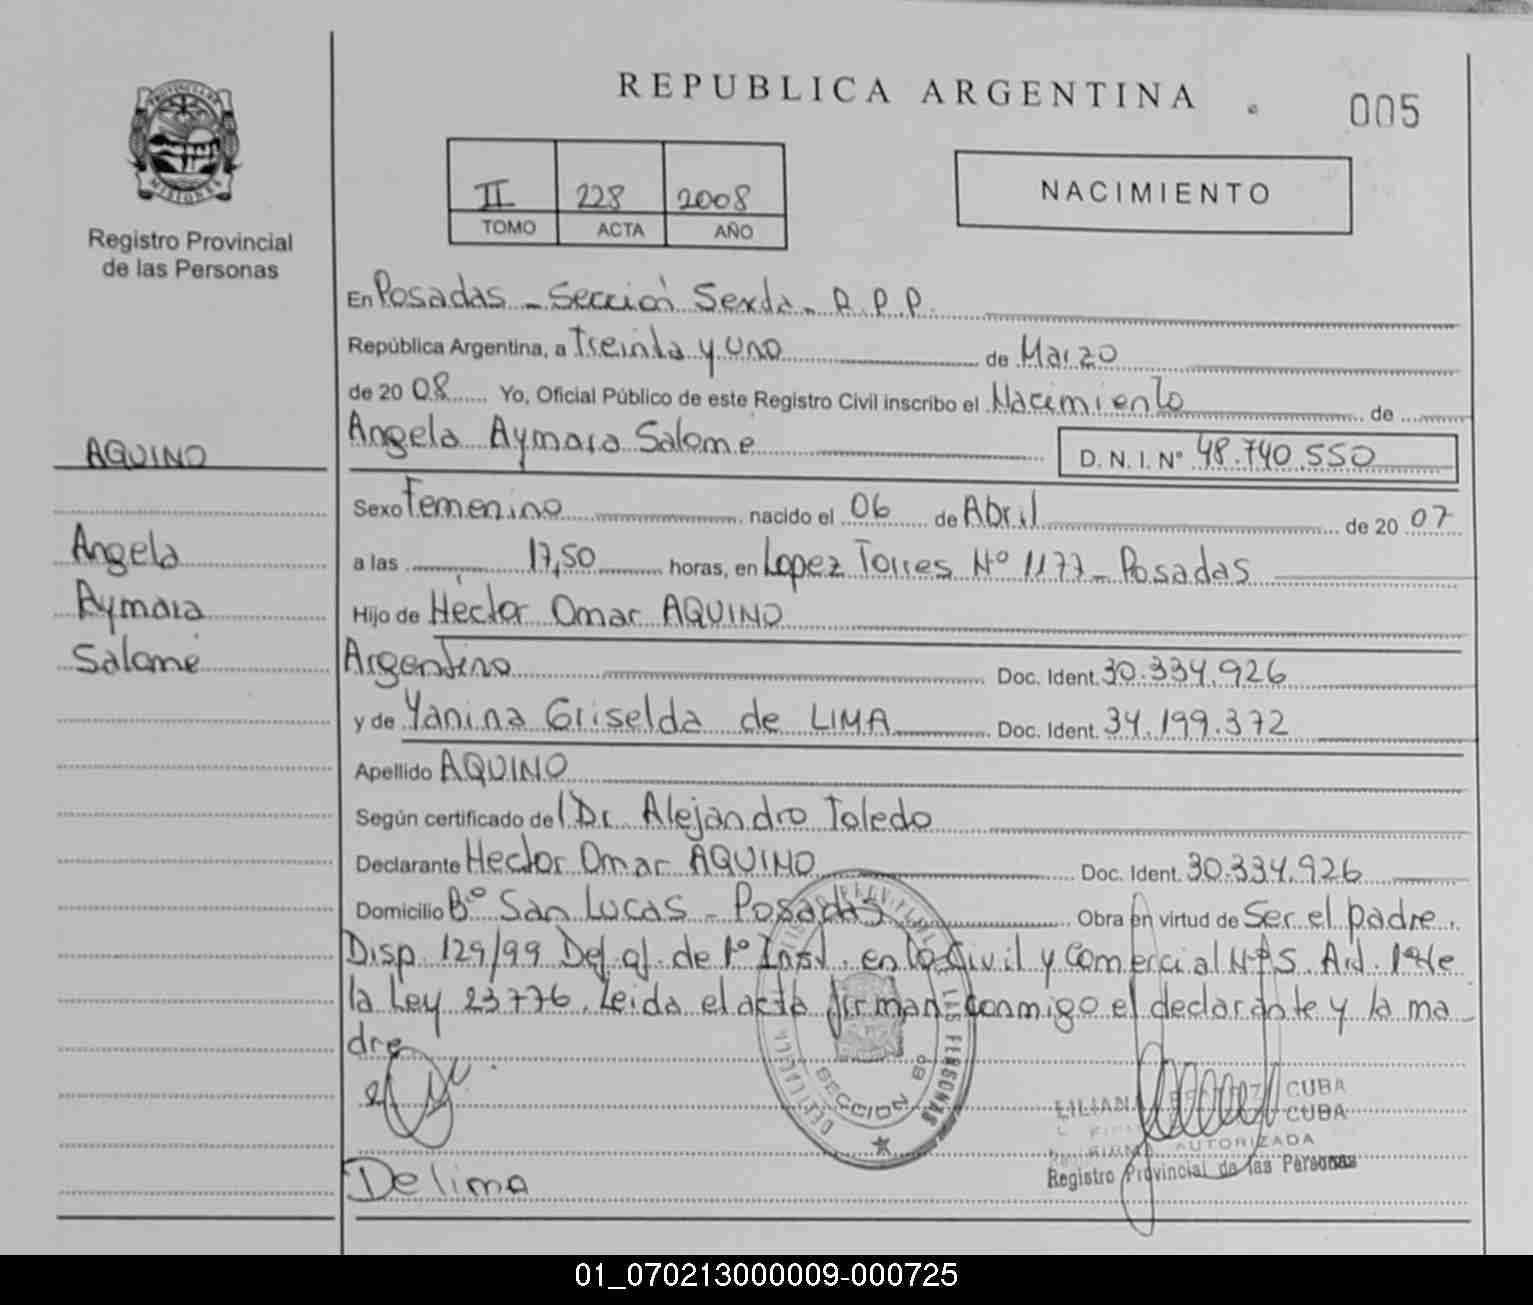 REPUBLICA ARGENTINA
005
PROVINCIA DE
MISIONES
Registro Provincial
de las Personas
II 228 2008
TOMO ACTA AÑO
NACIMIENTO
En Posadas - Sección Sexta - R.P.P.
República Argentina, a Treinta y uno de Marzo
de 2008 Yo, Oficial Público de este Registro Civil inscribo el Nacimiento de
Angela Aymara Salome D.N.I. Nº 48.740.550
AQUINO
Angela
Aymara
Salome
Sexo Femenino nacido el 06 de Abril de 2007
a las 17,50 horas, en Lopez Torres Nº 1177 - Posadas
Hijo de Héctor Omar AQUINO
Argentino Doc. Ident. 30.334.926
y de Yanina Griselda de LIMA Doc. Ident. 34.199.372
Apellido AQUINO
Según certificado del Dr. Alejandro Toledo
Declarante Hector Omar AQUINO Doc. Ident. 30.334.926
Domicilio Bº San Lucas - Posadas Obra en virtud de Ser el padre.
Disp. 129/99 Def. of. de 1º Inst. en lo Civil y Comercial Nº5. Art. 1º de
la Ley 23776. Leida el acta firman conmigo el declarante y la ma-
dre
SECCION 6º
LAS PERSONAS
Delima
LILIANA CUBA
CUBA
FIRMA AUTORIZADA
Registro Provincial de las Personas
01_070213000009-000725